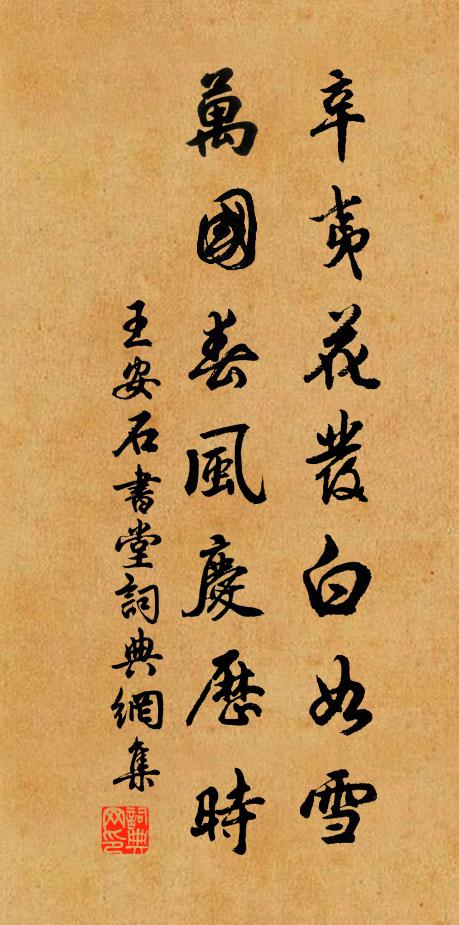 辛夷花發白如雪
萬國春風慶歷時
王安石書堂詞典網集
詞典网印